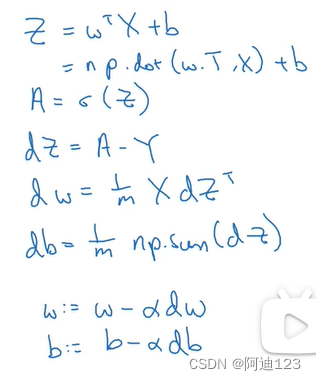 Z = wᵀX + b
= np.dot(w.T, X) + b
A = σ(Z)
dZ = A - Y
dw = 1/m X dZᵀ
db = 1/m np.sum(dZ)
w := w - αdw
b := b - αdb
CSDN @阿迪123